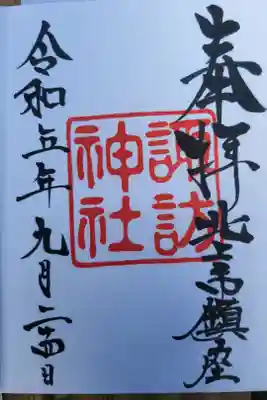 奉拝 北高鎮座
諏訪
神社
令和五年九月二十四日